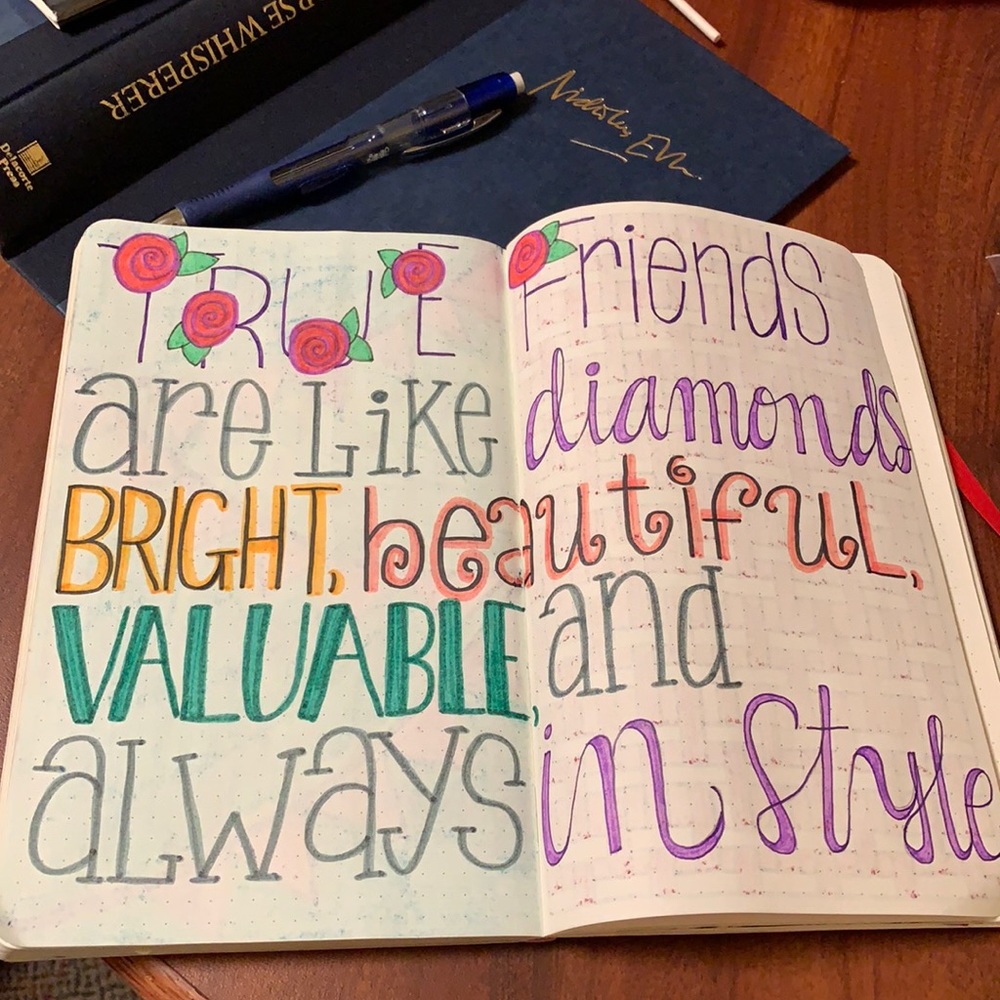 RSE WHISPERER
Delacorte
Press
Nicholas Evans
TRUE Friends
are Like diamonds
BRIGHT, beautiful,
VALUABLE, and
always in Style